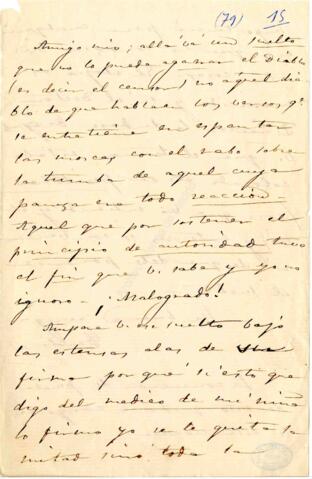 (79) 15
Amigo mio; allá vá un suelto
que no lo puede agarrar el Diablo
(es decir el censor) no aquel dia
blo de que hablan los versos q.e
se entretiene en espantar
las moscas con el rabo sobre
la tumba de aquel cuya
panza era todo reacción -
Aquel que por sostener el
principio de autoridad tuvo
el fin que V. sabe y yo no
ignoro - ¡Malogrado!
Ampare V. ese suelto bajo
las estensas alas de su
firma por qué si esto que
digo del medico de mi niña
lo firmo yo se le quita la
mitad sinó toda la